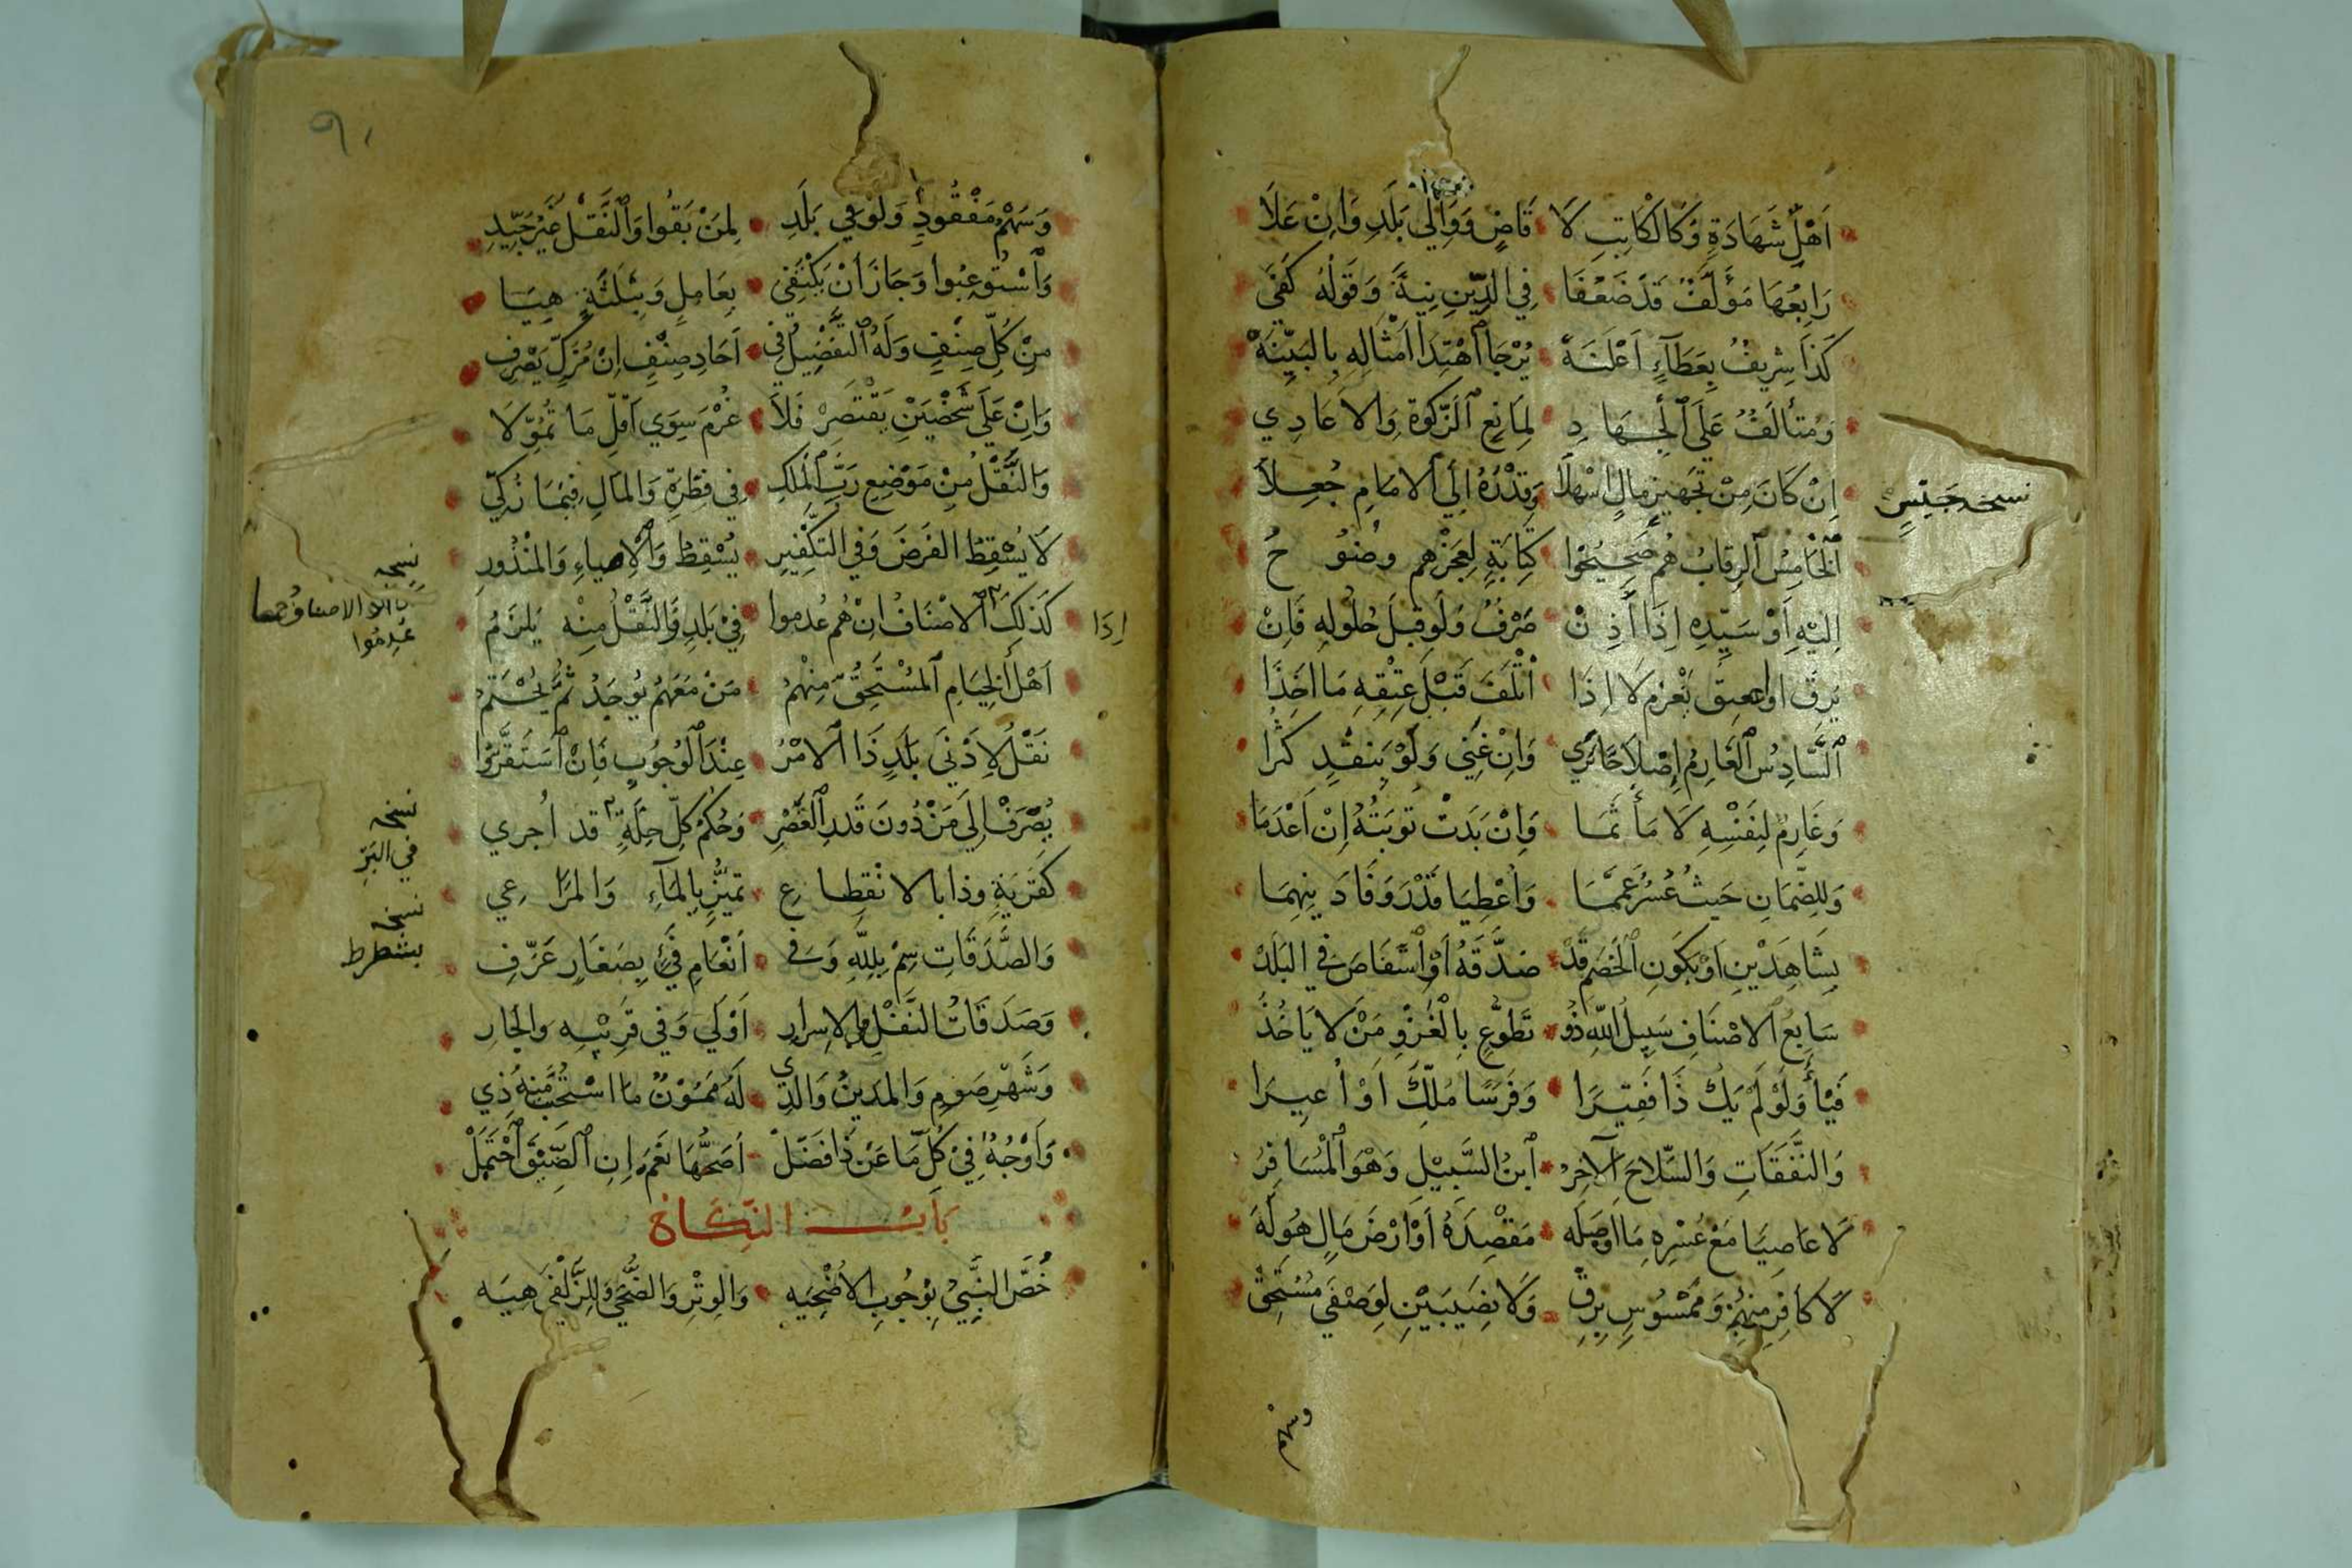 اَهْلِ شَهَادَةٍ وَكَالْكَاتِبِ لَا قَاضٍ وَوَالِي بَلَدٍ وَاِنْ عَلَا
رَابِعُهَا مُؤَلَّفٌ قَدْ ضَعُفَا فِي الدِّينِ نِيَّةً وَقَوْلُهُ كَفَى
كَذَا شَرِيفٌ بِعَطَآءٍ اَعْلَنَهْ يُرْجَا اهْتِدَا اَمْثَالِهِ بِالبَيِّنَهْ
وَمُتَأَلَّفٌ عَلَى الْجِهَادِ لِمَانِعِ الزَّكٰوةِ وَالاَعَادِي
اِنْ كَانَ مِنْ تَجْهِيزِ مَالٍ اَسْهَلَا وَقَدْرُهُ اِلَى الاِمَامِ جُعِلَا
نسخه جَيْشٍ
اَلْخَامِسُ الرِّقَابُ هُمْ صَحِيحُوا كِتَابَةٍ لِعَجْزِهِم وضُوُحُ
اِلَيْهِ اَوْ سَيِّدِهِ اِذَا أَذِنْ صَرْفٌ وَلَوْ قَبْلَ حُلُولِهِ فَاِنْ
يَرِقَّ او اعتق يَغْرَمْ لَا اِذَا اَتْلَفَ قَبْلَ عِتْقِهِ مَا اَخَذَا
اَلسَّادِسُ الْغَارِمُ اِصْلَاحًا يَرَي وَاِنْ غَنِي وَلَوْ بِنَقْدٍ كَثُرَا
وَغَارِمٌ لِنَفْسِهِ لَا مَأْثَمَا وَاِنْ بَدَتْ تَوْبَتُهُ اِنْ اَعْدَمَا
وَلِلضَّمَانِ حَيْثُ عُسْرٌ عَمَّمَا وَاُعْطِيَا قَدْرَ وَفَا دَيْنِهِمَا
بِشَاهِدَيْنِ اَوْ يَكُونِ الْخَصْمُ قَدْ صَدَّقَهُ اَوْ اسْتَفَاضَ فِي البَلَدْ
سَابِعُ الاَصْنَافِ سَبِيلُ اللّٰهِ ذُو تَطَوُّعٍ بِالْغَزْوِ مَنْ لَا يَاخُذُ
فَيْأً وَلَوْ لَمْ يَكُ ذَا فَقِيرَا وَفَرَسًا مُلِّكَ اَوْ اُعِيرَا
وَالنَّفَقَاتِ وَالسِّلَاحَ الآخِرُ اَبْنُ السَّبِيْلِ وَهْوَ الْمُسَافِرُ
لَا عَاصِيًا مَعْ عُسْرِهِ مَا اَوْصَلَه مَقْصِدَهُ اَوْ اَرْضَ مَالٍ هُوَ لَهْ
لَا كَافِرٍ مِنْهُمْ وَمَمْسُوسٍ بِرِقّ وَلَا نَصِيبَيْنِ لِوَصْفَيْ مُسْتَحِقّ
وسهم
وَسَهْمُ مَفْقُودٍ وَلَوْ فِي بَلَدِ لِمَنْ بَقُوا وَالنَّقْلُ غَيْرُ جَيِّدِ
وَاُسْتُوعِبُوا وَجَازَ اَنْ يَكْتَفِي بِعَامِلٍ وَبِثَلٰثَةٍ هِيَا
مِنْ كُلِّ صِنْفٍ وَلَهُ التَّفْضِيلُ فِي اَحَادِ صِنْفٍ اِنْ مُزَكٍّ يَصْرِفِ
وَاِنْ عَلَى شَخْصَيْنِ يَقْتَصِرْ فَلَا غُرْمَ سِوَي اَقَلِّ مَا تُمُوِّلَا
وَالنَّقْلُ مِنْ مَوْضِعِ رَبِّ الْمِلْكِ فِي فِطْرَةٍ وَالمَالِ فِيمَا زُكِّي
لَا يُسْقِطُ الفَرْضَ وَفِي التَّكْفِيرِ يُسْقِطُ وَالْاِيصَاءِ وَالمَنْذُورِ
كَذَلِكَ الاَصْنَافُ اِنْ هُمْ عُدِمُوا فِيْ بَلَدٍ وَالنَّقْلُ مِنْهِ يَلْزَمُ
اِذَا
نسخه
عُدِمُوا
اَهْلُ الْخِيَامِ الْمُسْتَحِقُّ مِنْهُمْ مَنْ مَعَهُمْ يُوجَدُ ثُمَّ يُحْتَمُ
نَقْلٌ لِاَدْنَى بَلَدٍ ذَا الاَمْرُ عِنْدَ الْوُجُوبِ فَاِنْ اسْتَقَرُّوا
يُصْرَفْ اِلَى مَنْ دُونَ قَدرِ الْقَصْرِ وَحُكْمُ كُلِّ حِلَّةٍ قد اُجري
نسخه
في البَرِّ
كَقَرْيَةٍ وذا بالانْقِطاعِ تَمَيُّزٍ بِالمَآءِ وَالمَرَاعِي
نسخه
بشطرط
وَالصَّدَقَاتِ سِمْ بِلِلّٰهِ وَسَفَ اَنْعَامِ فَيْءٍ بِصَغَارٍ عَرِّفِ
وَصَدَقَاتُ النَّفْلِ والاِسرارِ اَوْلَى وَفِي قَرِيْبِهِ والجَارِ
وَشَهْرِ صَوْمٍ وَالمَدِينُ وَالذِي لَهُ مَمُوْنٌ ما اسْتُحِبَّ مِنْهُ ذِي
وَاَوْجُهٌ فِيْ كُلِّ مَا عَنْ ذَا فَضَلْ اَصَحُّهَا نَعَمْ اِنِ الضِّيْقَ اَحْتَمَلْ
بَابُ النِّكَاحِ
خُصَّ النَّبِيْ بِوُجُوبِ الاُضْحِيَه وَالوِتْرِ وَالضُّحَى وَلِلزُّلْفَى هِيَه